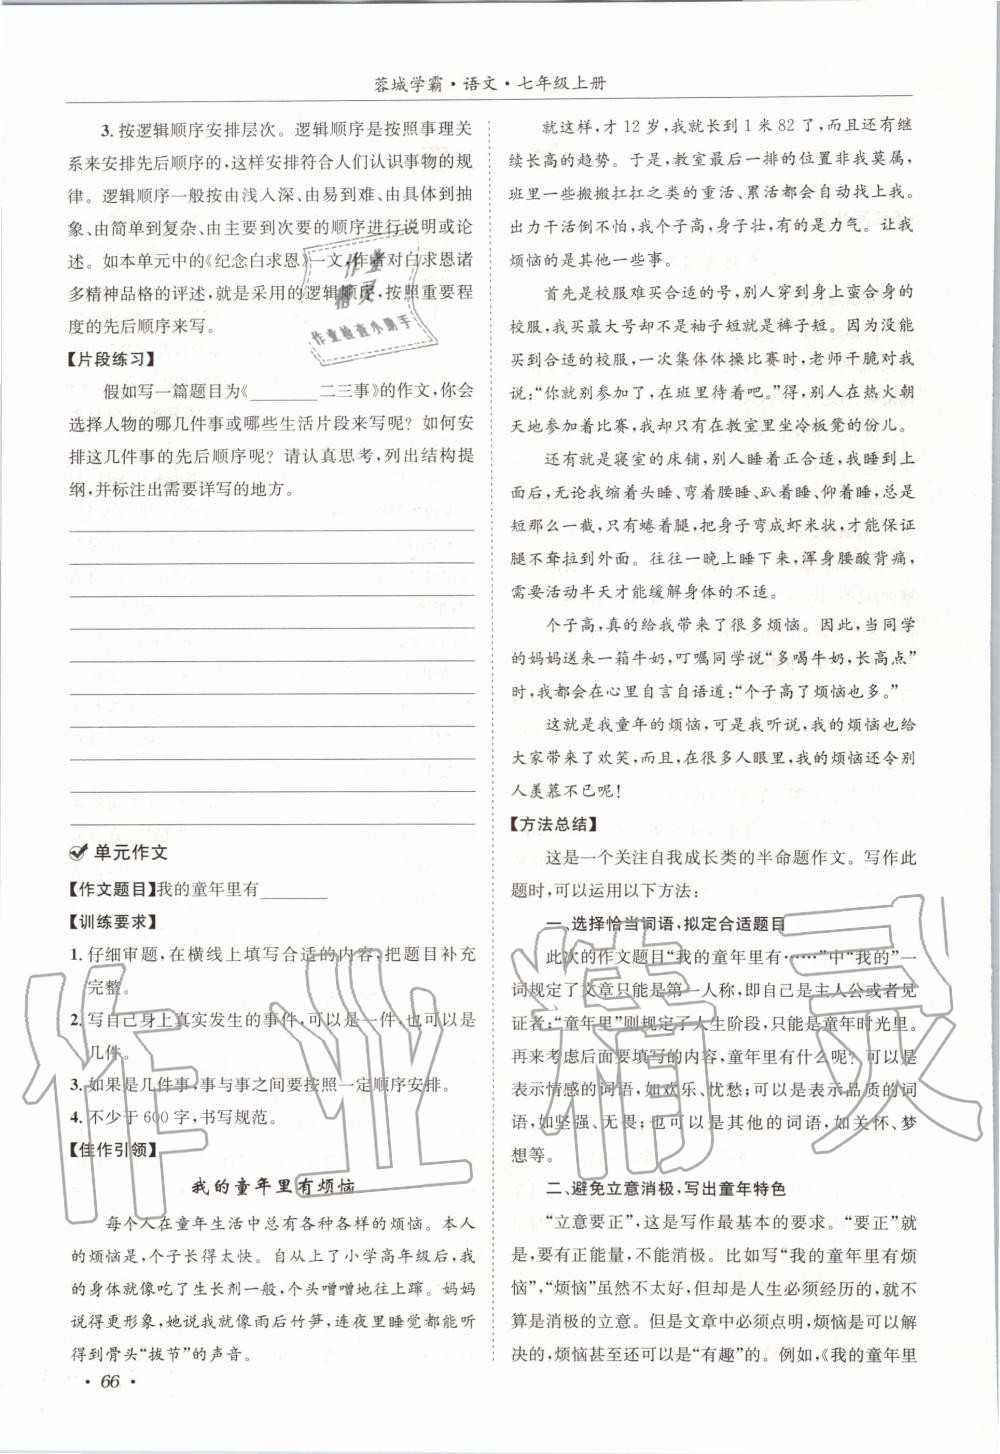 蓉城学霸·语文·七年级上册
3. 按逻辑顺序安排层次。逻辑顺序是按照事理关
系来安排先后顺序的,这样安排符合人们认识事物的规
律。逻辑顺序一般按由浅入深、由易到难、由具体到抽
象、由简单到复杂、由主要到次要的顺序进行说明或论
述。如本单元中的《纪念白求恩》一文,作者对白求恩诸
多精神品格的评述,就是采用的逻辑顺序,按照重要程
度的先后顺序来写。
【片段练习】
假如写一篇题目为《________二三事》的作文,你会
选择人物的哪几件事或哪些生活片段来写呢?如何安
排这几件事的先后顺序呢?请认真思考,列出结构提
纲,并标注出需要详写的地方。
单元作文
【作文题目】我的童年里有________
【训练要求】
1. 仔细审题,在横线上填写合适的内容,把题目补充
完整。
2. 写自己身上真实发生的事件,可以是一件,也可以是
几件。
3. 如果是几件事,事与事之间要按照一定顺序安排。
4. 不少于600字,书写规范。
【佳作引领】
我的童年里有烦恼
每个人在童年生活中总有各种各样的烦恼。本人
的烦恼是,个子长得太快。自从上了小学高年级后,我
的身体就像吃了生长剂一般,个头噌噌地往上蹿。妈妈
说得更形象,她说我就像雨后竹笋,连夜里睡觉都能听
得到骨头“拔节”的声音。
就这样,才12岁,我就长到1米82了,而且还有继
续长高的趋势。于是,教室最后一排的位置非我莫属,
班里一些搬搬扛扛之类的重活、累活都会自动找上我。
出力干活倒不怕,我个子高,身子壮,有的是力气。让我
烦恼的是其他一些事。
首先是校服难买合适的号,别人穿到身上蛮合身的
校服,我买最大号却不是袖子短就是裤子短。因为没能
买到合适的校服,一次集体体操比赛时,老师干脆对我
说:“你就别参加了,在班里待着吧。”得,别人在热火朝
天地参加着比赛,我却只有在教室里坐冷板凳的份儿。
还有就是寝室的床铺,别人睡着正合适,我睡到上
面后,无论我缩着头睡、弯着腰睡、趴着睡、仰着睡,总是
短那么一截,只有蜷着腿,把身子弯成虾米状,才能保证
腿不耷拉到外面。往往一晚上睡下来,浑身腰酸背痛,
需要活动半天才能缓解身体的不适。
个子高,真的给我带来了很多烦恼。因此,当同学
的妈妈送来一箱牛奶,叮嘱同学说“多喝牛奶,长高点”
时,我都会在心里自言自语道:“个子高了烦恼也多。”
这就是我童年的烦恼,可是我听说,我的烦恼也给
大家带来了欢笑,而且,在很多人眼里,我的烦恼还令别
人羡慕不已呢!
【方法总结】
这是一个关注自我成长类的半命题作文。写作此
题时,可以运用以下方法:
一、选择恰当词语,拟定合适题目
此次的作文题目“我的童年里有……”中“我的”一
词规定了文章只能是第一人称,即自己是主人公或者见
证者;“童年里”则规定了人生阶段,只能是童年时光里。
再来考虑后面要填写的内容,童年里有什么呢?可以是
表示情感的词语,如欢乐、忧愁;可以是表示品质的词
语,如坚强、无畏;也可以是其他的词语,如关怀、梦
想等。
二、避免立意消极,写出童年特色
“立意要正”,这是写作最基本的要求。“要正”就
是,要有正能量,不能消极。比如写“我的童年里有烦
恼”,“烦恼”虽然不太好,但却是人生必须经历的,就不
算是消极的立意。但是文章中必须点明,烦恼是可以解
决的,烦恼甚至还可以是“有趣”的。例如,《我的童年里
·66·
作业
精灵
作业检查小助手
作业精灵